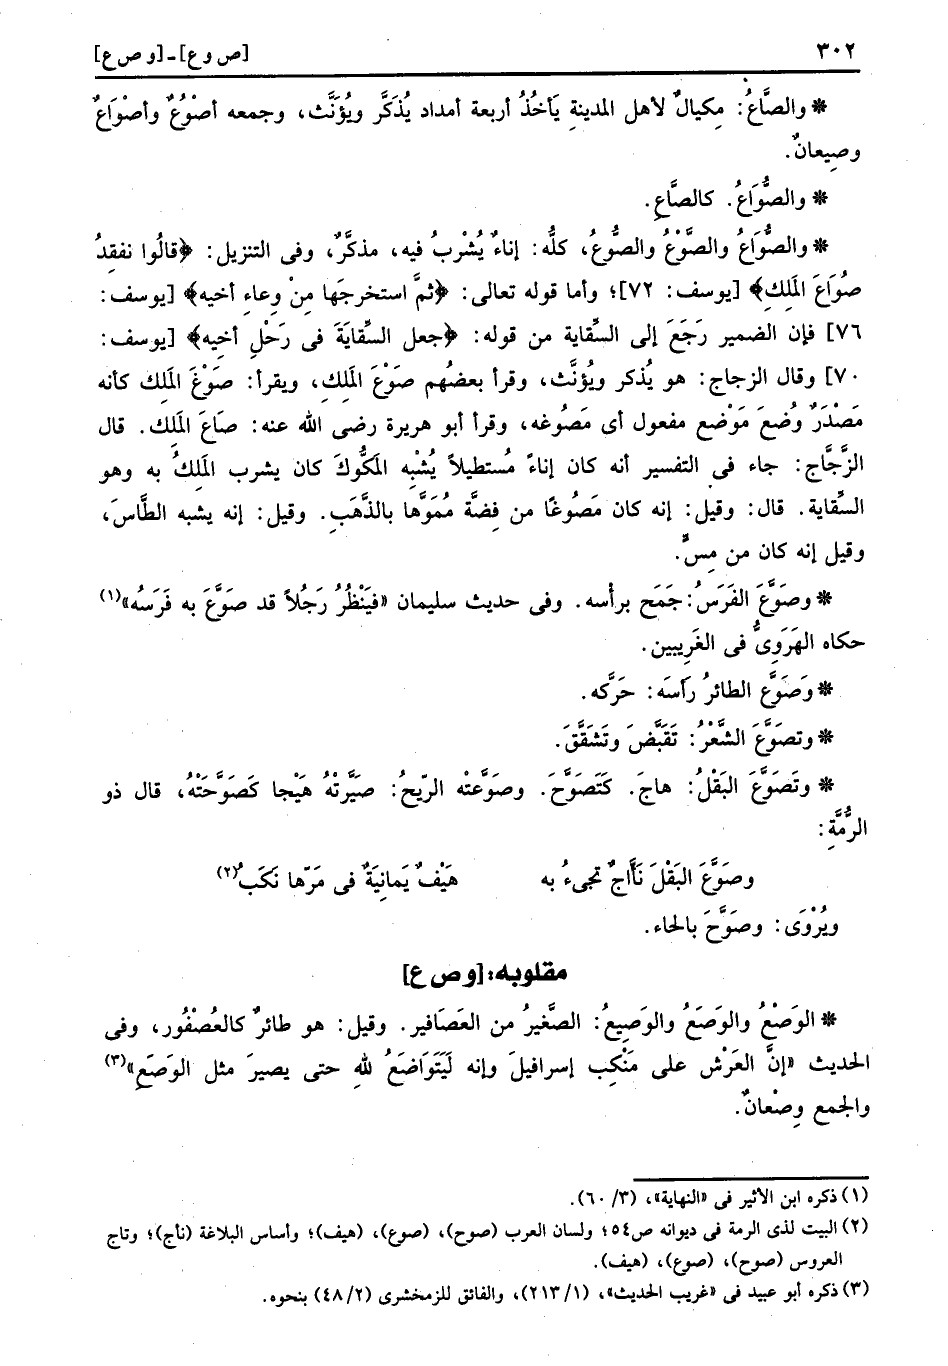 ٣٠٢ [ص و ع] ـ [و ص ع]
* والصَّاعُ: مِكيالٌ لأهل المدينةِ يَأخُذُ أربعة أمداد يُذَكَّر ويُؤنَّث، وجمعه أصْوُعٌ وأصْوَاعٌ
وصِيعانٌ.
* والصُّوَاعُ. كالصَّاعِ.
* والصُّوَاعُ والصَّوْعُ والصُّوعُ، كلُّه: إناءٌ يُشْربُ فيه، مذكَّرٌ، وفى التنزيل: ﴿قالُوا نفقِدُ
صُوَاعَ المَلِكِ﴾ [يوسف: ٧٢]؛ وأما قوله تعالى: ﴿ثمَّ استخرجَها مِنْ وِعاءِ أخيه﴾ [يوسف:
٧٦] فإن الضمير رَجَعَ إلى السِّقاية من قوله: ﴿جعل السِّقايَةَ فى رَحْلِ أخيه﴾ [يوسف:
٧٠] وقال الزجاج: هو يُذكر ويُؤنَّث، وقرأ بعضُهم صَوْعَ المَلِك، ويقرأ: صَوْغَ المَلِك كأنه
مَصْدَرٌ وُضعَ مَوْضِع مفعول أى مَصُوغه، وقرأ أبو هريرة رضى الله عنه: صَاعَ المَلك. قال
الزَّجَّاج: جاء فى التفسير أنه كان إناءً مُستطيلاً يُشْبِه المَكُّوكَ كان يشرب المَلِكُ به وهو
السِّقاية. قال: وقيل: إنه كان مَصُوغًا من فِضَّة مُمَوَّها بالذَّهَبِ. وقيل: إنه يشبه الطَّاسَ،
وقيل إنه كان من مِسٍّ.
* وصَوَّعَ الفَرَسُ: جَمَح برأسه. وفى حديث سليمان «فيَنْظُرُ رَجُلاً قد صَوَّعَ به فَرَسُه»(١)
حكاه الهَرَوِىُّ فى الغَرِيبين.
* وَصَوَّع الطائرُ رَأسَه: حَرَّكه.
* وتصَوَّعَ الشَّعْرُ: تَقَبَّضَ وتَشَقَّقَ.
* وتَصَوَّعَ البَقْلُ: هاجَ. كَتَصَوَّحَ. وصَوَّعَتْه الرّيحُ: صَيَّرَتْهُ هَيْجا كَصَوَّحَتْهُ، قال ذو
الرُّمَّةِ:
وصَوَّعَ البَقْلَ نَأاجٌ تجىءُ به هَيْفٌ يَمانِيَةٌ فى مَرّها نَكَبُ(٢)
ويُرْوَى: وصَوَّحَ بالحاء.
مقلوبه: [و ص ع]
* الوَصْعُ والوَصَعُ والوَصِيعُ: الصَّغيرُ من العَصَافير. وقيل: هو طائرٌ كالعُصْفُور، وفى
الحديث «إنَّ العَرْشَ على مَنْكِب إسرافيلَ وإنه لَيَتَوَاضَعُ للهِ حتى يصيرَ مثل الوَصَعِ»(٣)
والجمع وِصْعانٌ.
(١) ذكره ابن الأثير فى «النهاية»، (٣/ ٦٠).
(٢) البيت لذى الرمة فى ديوانه ص٥٤؛ ولسان العرب (صوح)، (صوع)، (هيف)؛ وأساس البلاغة (نأج)؛ وتاج
العروس (صوح)، (صوع)، (هيف).
(٣) ذكره أبو عبيد فى «غريب الحديث»، (١/ ٢١٣)، والفائق للزمخشرى (٢/ ٤٨) بنحوه.